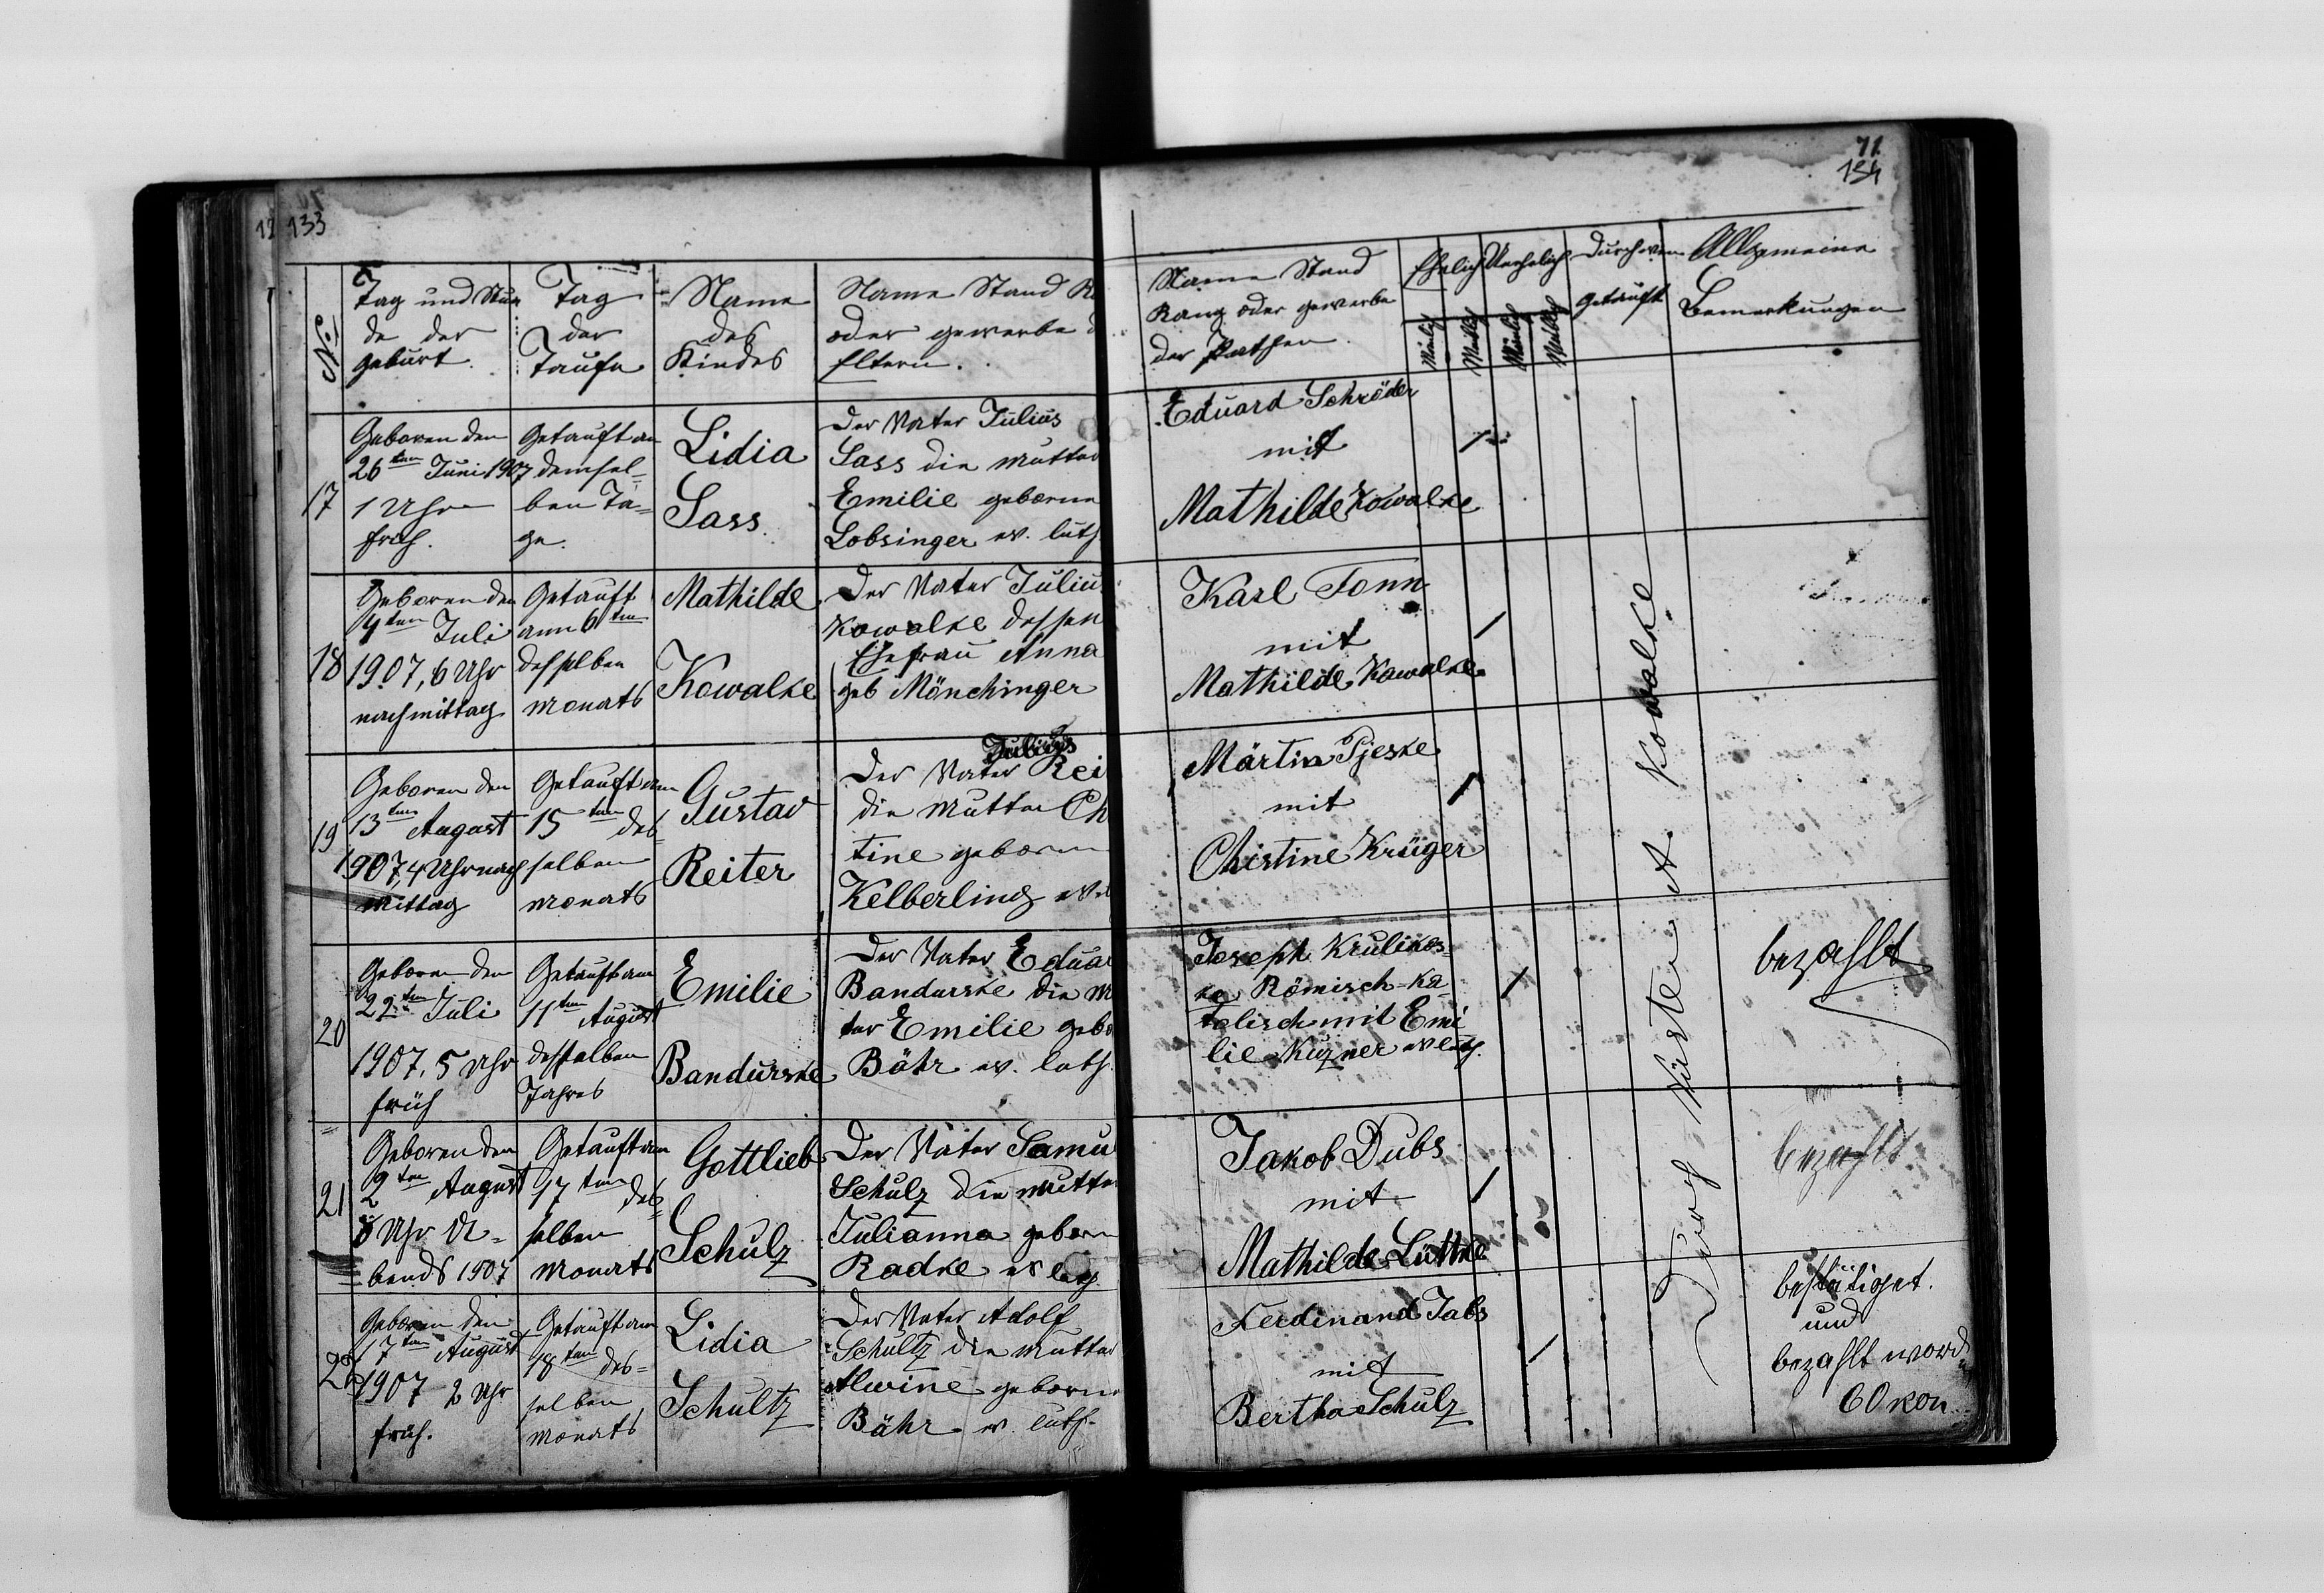 12 133
No
Tag und Stun
de der
geburt.
Tag
der
Taufe
Name
des
Kindes
Name Stand R
oder gewerbe d
Eltern.
17
Geboren den
26ten Juni 1907
1 Uhr
früh.
Getauft an
demsel-
ben Ta-
ge.
Lidia
Sass.
Der Vater Julius
Sass die Mutter
Emilie geborne
Lobsinger ev. luth
18
Geboren den
4ten Juli
1907, 6 Uhr
nachmittag
Getauft
am 6ten
desselben
Monats
Mathilde
Kowalke
Der Vater Julius
Kowalke dessen
Ehefrau Anna
geb Mönchinger
19
Geboren den
13ten August
1907, 4 Uhr nach
mittag
Getauft am
15ten des-
selben
Monats
Gustav
Reiter
Julius
Der Vater Rei
die Mutter Ch
tine geborne
Kelberling ev. l
20
Geboren den
22ten Juli
1907. 5 Uhr
früh
Getauft am
11ten August
desselben
Jahres
Emilie
Bandurske
Der Vater Eduar
Bandurske die M
ter Emilie gebo
Bähr ev. luth.
21
Geboren den
2ten August
8 Uhr A-
bends 1907
Getauft am
17ten des-
selben
Monats
Gottlieb
Schulz
Der Vater Samu
Schulz die Mutter
Julianna geborn
Radke ev luth
22
Geboren den
17ten August
1907 2 Uhr
früh.
Getauft am
18ten des-
selben
Monats
Lidia
Schultz
Der Vater Adolf
Schultz die Mutter
Alwine geborne
Bähr ev. luth.
71.
134
Name Stand
Rang oder gewerbe
der Pathen.
Ehelich
Unehelich
Mänlich
Weiblich
Mänlich
Weiblich
Durch wem
getauft
Allgemeine
Bemerkungen
Eduard Schröder
mit
Mathilde Kowalke
Karl Tonn
mit
Mathilde Kowalke
Märtin Pjeske
mit
Christine Krüger
Joseph Krulikos-
ke Römisch-ka-
tolisch mit Emi
lie Kuzner ev luth.
bezahlt
Jakob Dubs
mit
Mathilde Lüttke
bezahlt
Ferdinand Jabs
mit
Bertha Schulz
bestätiget.
und
bezahlt word
60 kop
Durch Küster A. Kowalke